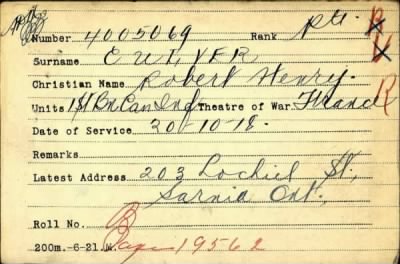 Number 4005069 Rank Pte. B
Surname CULVER
Christian Name Robert Henry.
Units 1st Bn Can Inf Theatre of War France R
Date of Service 20-10-18.
Remarks
Latest Address 203 Lochiel St,
Sarnia Ont.
Roll No. B
200m.-6-21. M. Page 19562